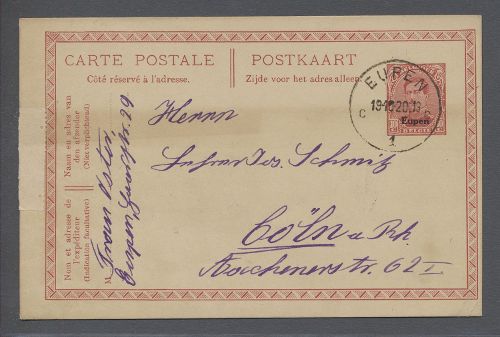 CARTE POSTALE
Côté réservé à l'adresse.
POSTKAART
Zijde voor het adres alleen.
EUPEN
C
1
Eupen
Naam en adres van
den afzender
(Niet verplichtend)
Nom et adresse de
l'expéditeur
(Indication facultative)
M
Frau Osten
Eupen
29
Herrn
Jos. Schmitz
Cöln a. Rh.
Aachenerstr. 62 I